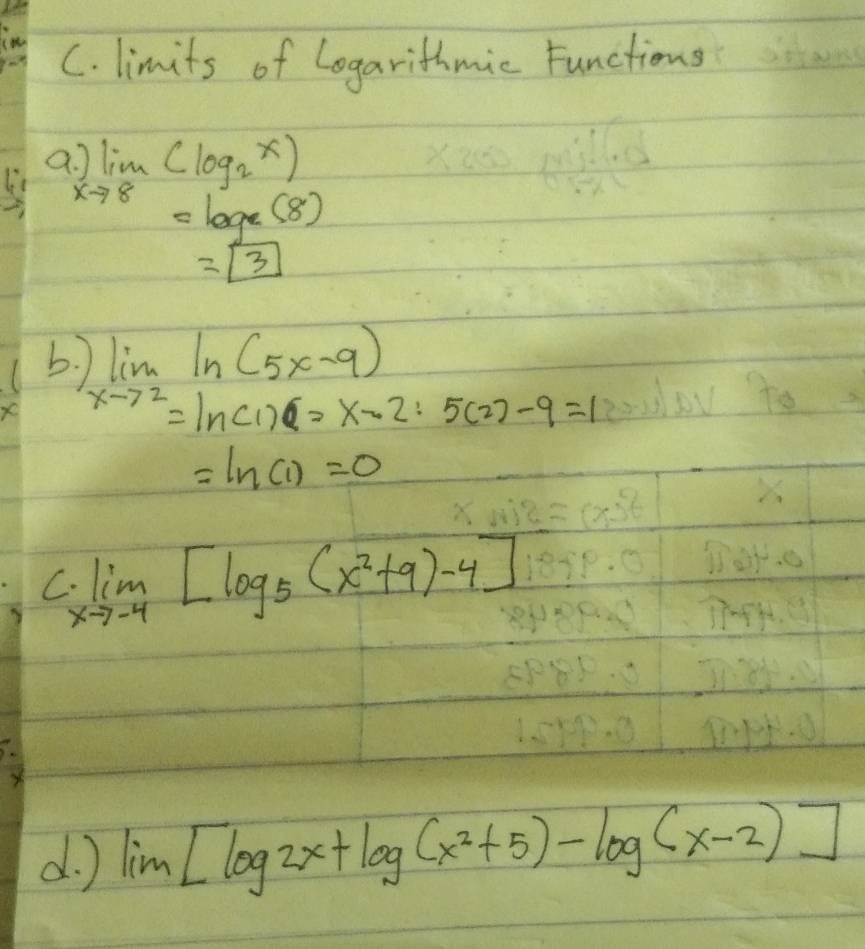 C. limits of Logarithmic Functions
a.) lim (log₂ x)
x→8
= log₂ (8)
= 3
b.) lim ln (5x-9)
x→2
= ln(1) = x→2: 5(2)-9=1
= ln(1) = 0
c. lim [log₅ (x²+9)-4]
x→-4
d.) lim [log 2x + log (x²+5) - log (x-2)]